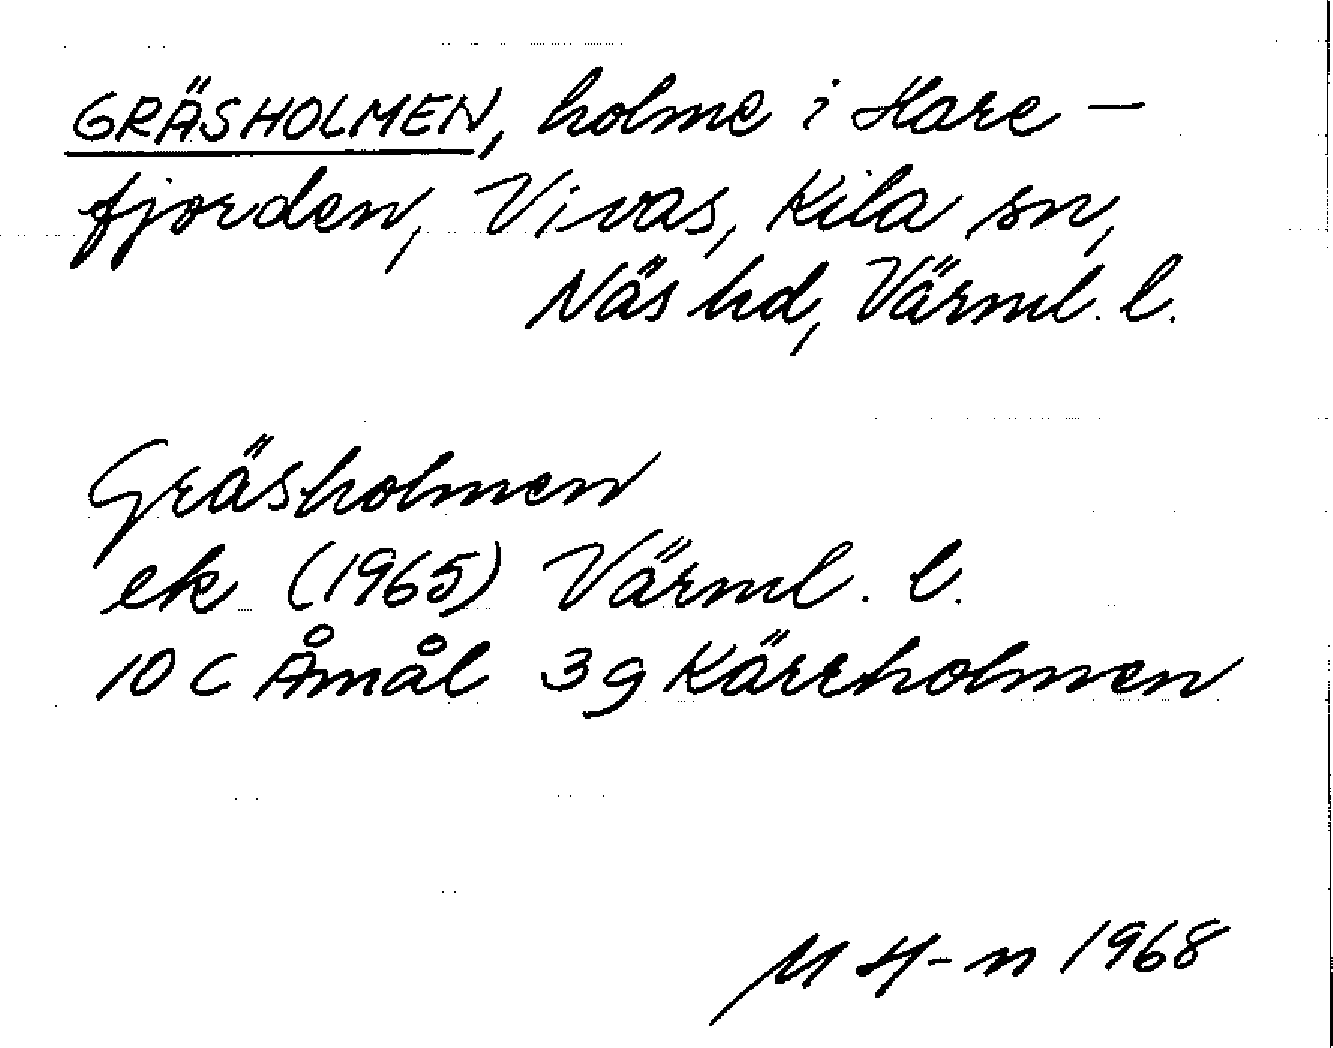 GRÄSHOLMEN, holme i Hare-
fjorden, Vivas, Kila sn,
Näs hd, Värml. l.
Gräsholmen
ek (1965) Värml. l.
10 C Åmål 3g Kärrholmen
M H-n 1968